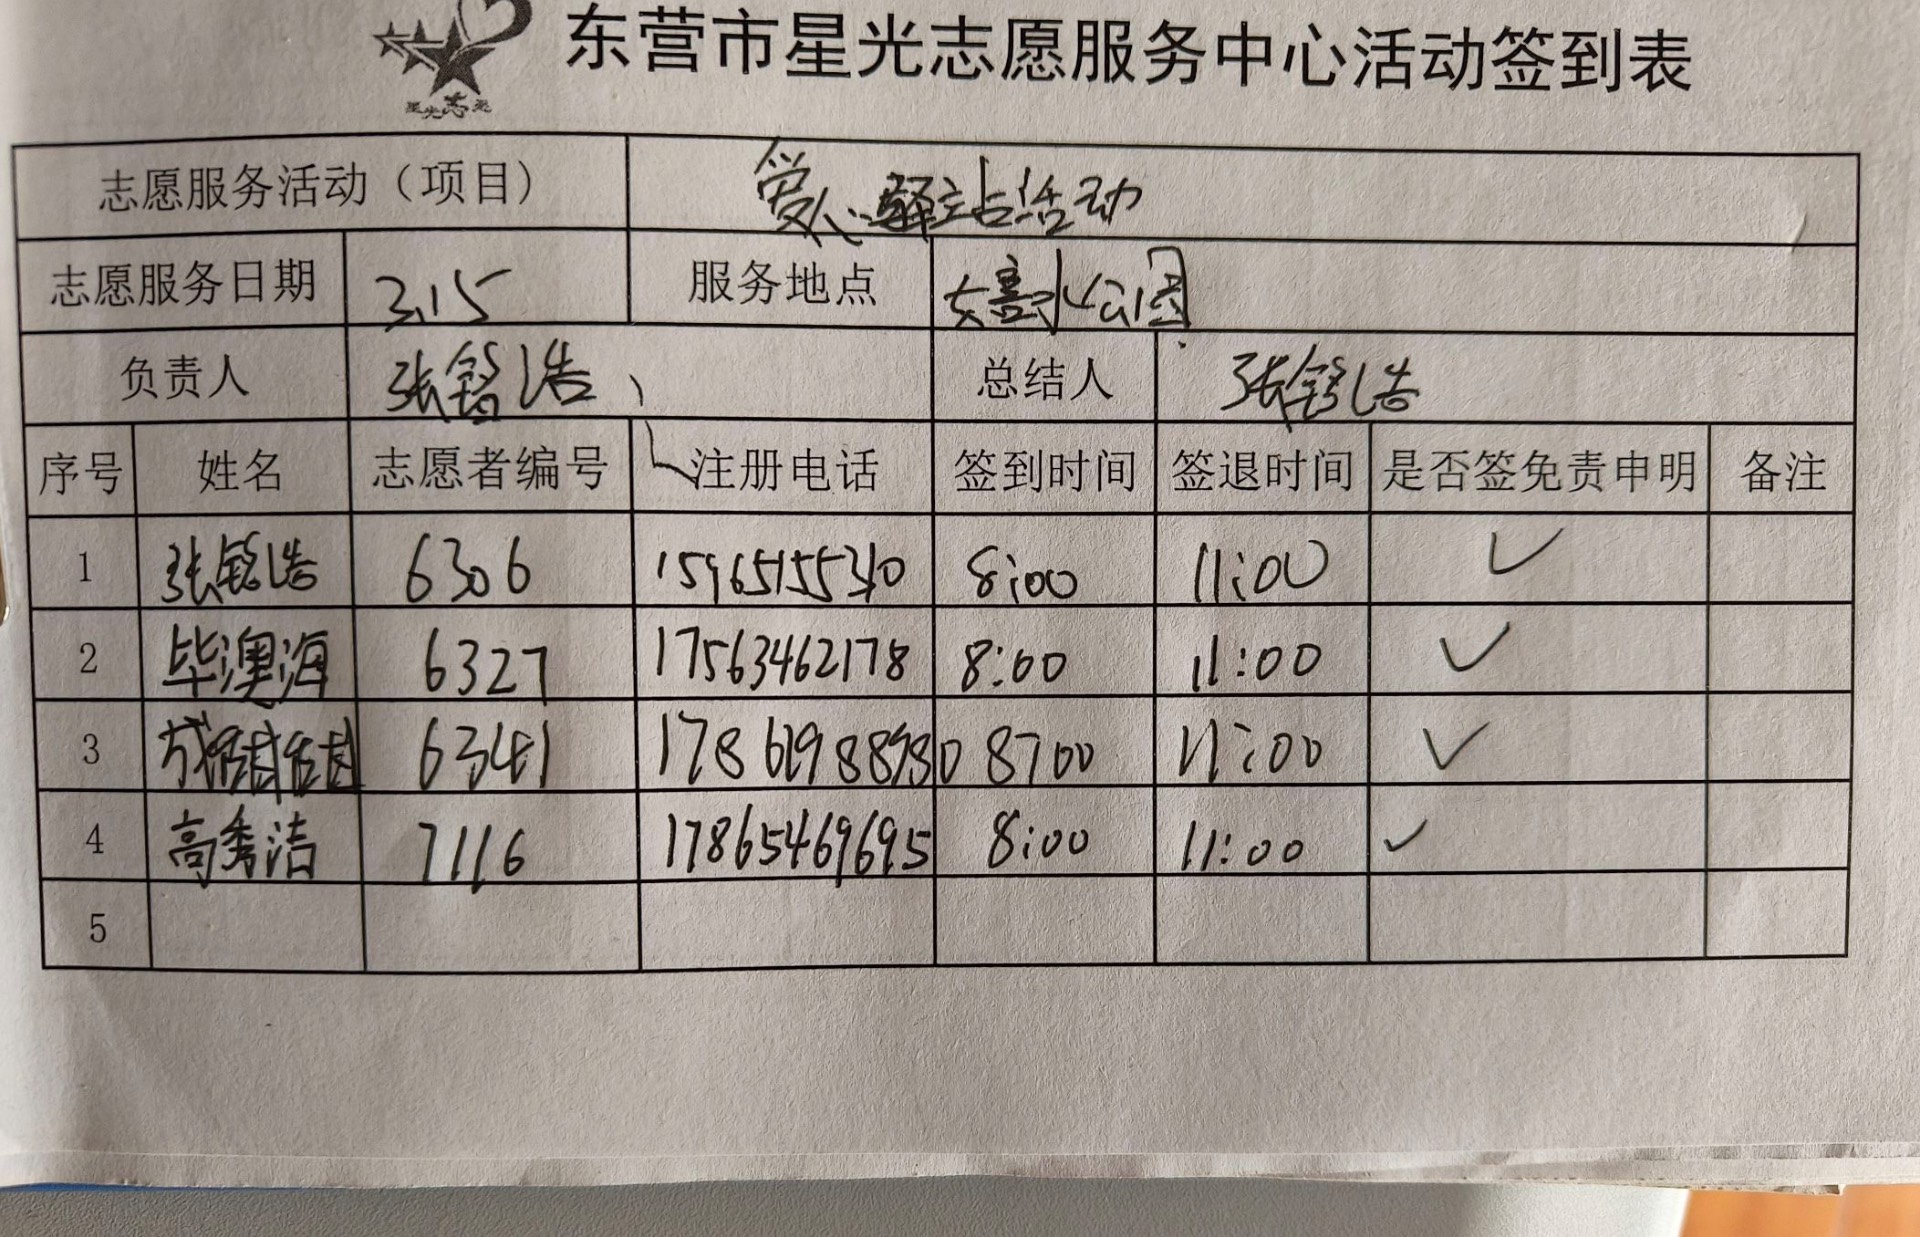 东营市星光志愿服务中心活动签到表
星光志愿
志愿服务活动（项目） 爱心驿站活动
志愿服务日期 3.15 服务地点 公园
负责人 张铭浩 总结人 张铭浩
序号 姓名 志愿者编号 注册电话 签到时间 签退时间 是否签免责申明 备注
1 张铭浩 6306 15965155310 8:00 11:00 ✓
2 毕澳海 6327 17563462178 8:00 11:00 ✓
3 成 6341 8:00 11:00 ✓
4 高秀洁 7116 17865469695 8:00 11:00 ✓
5